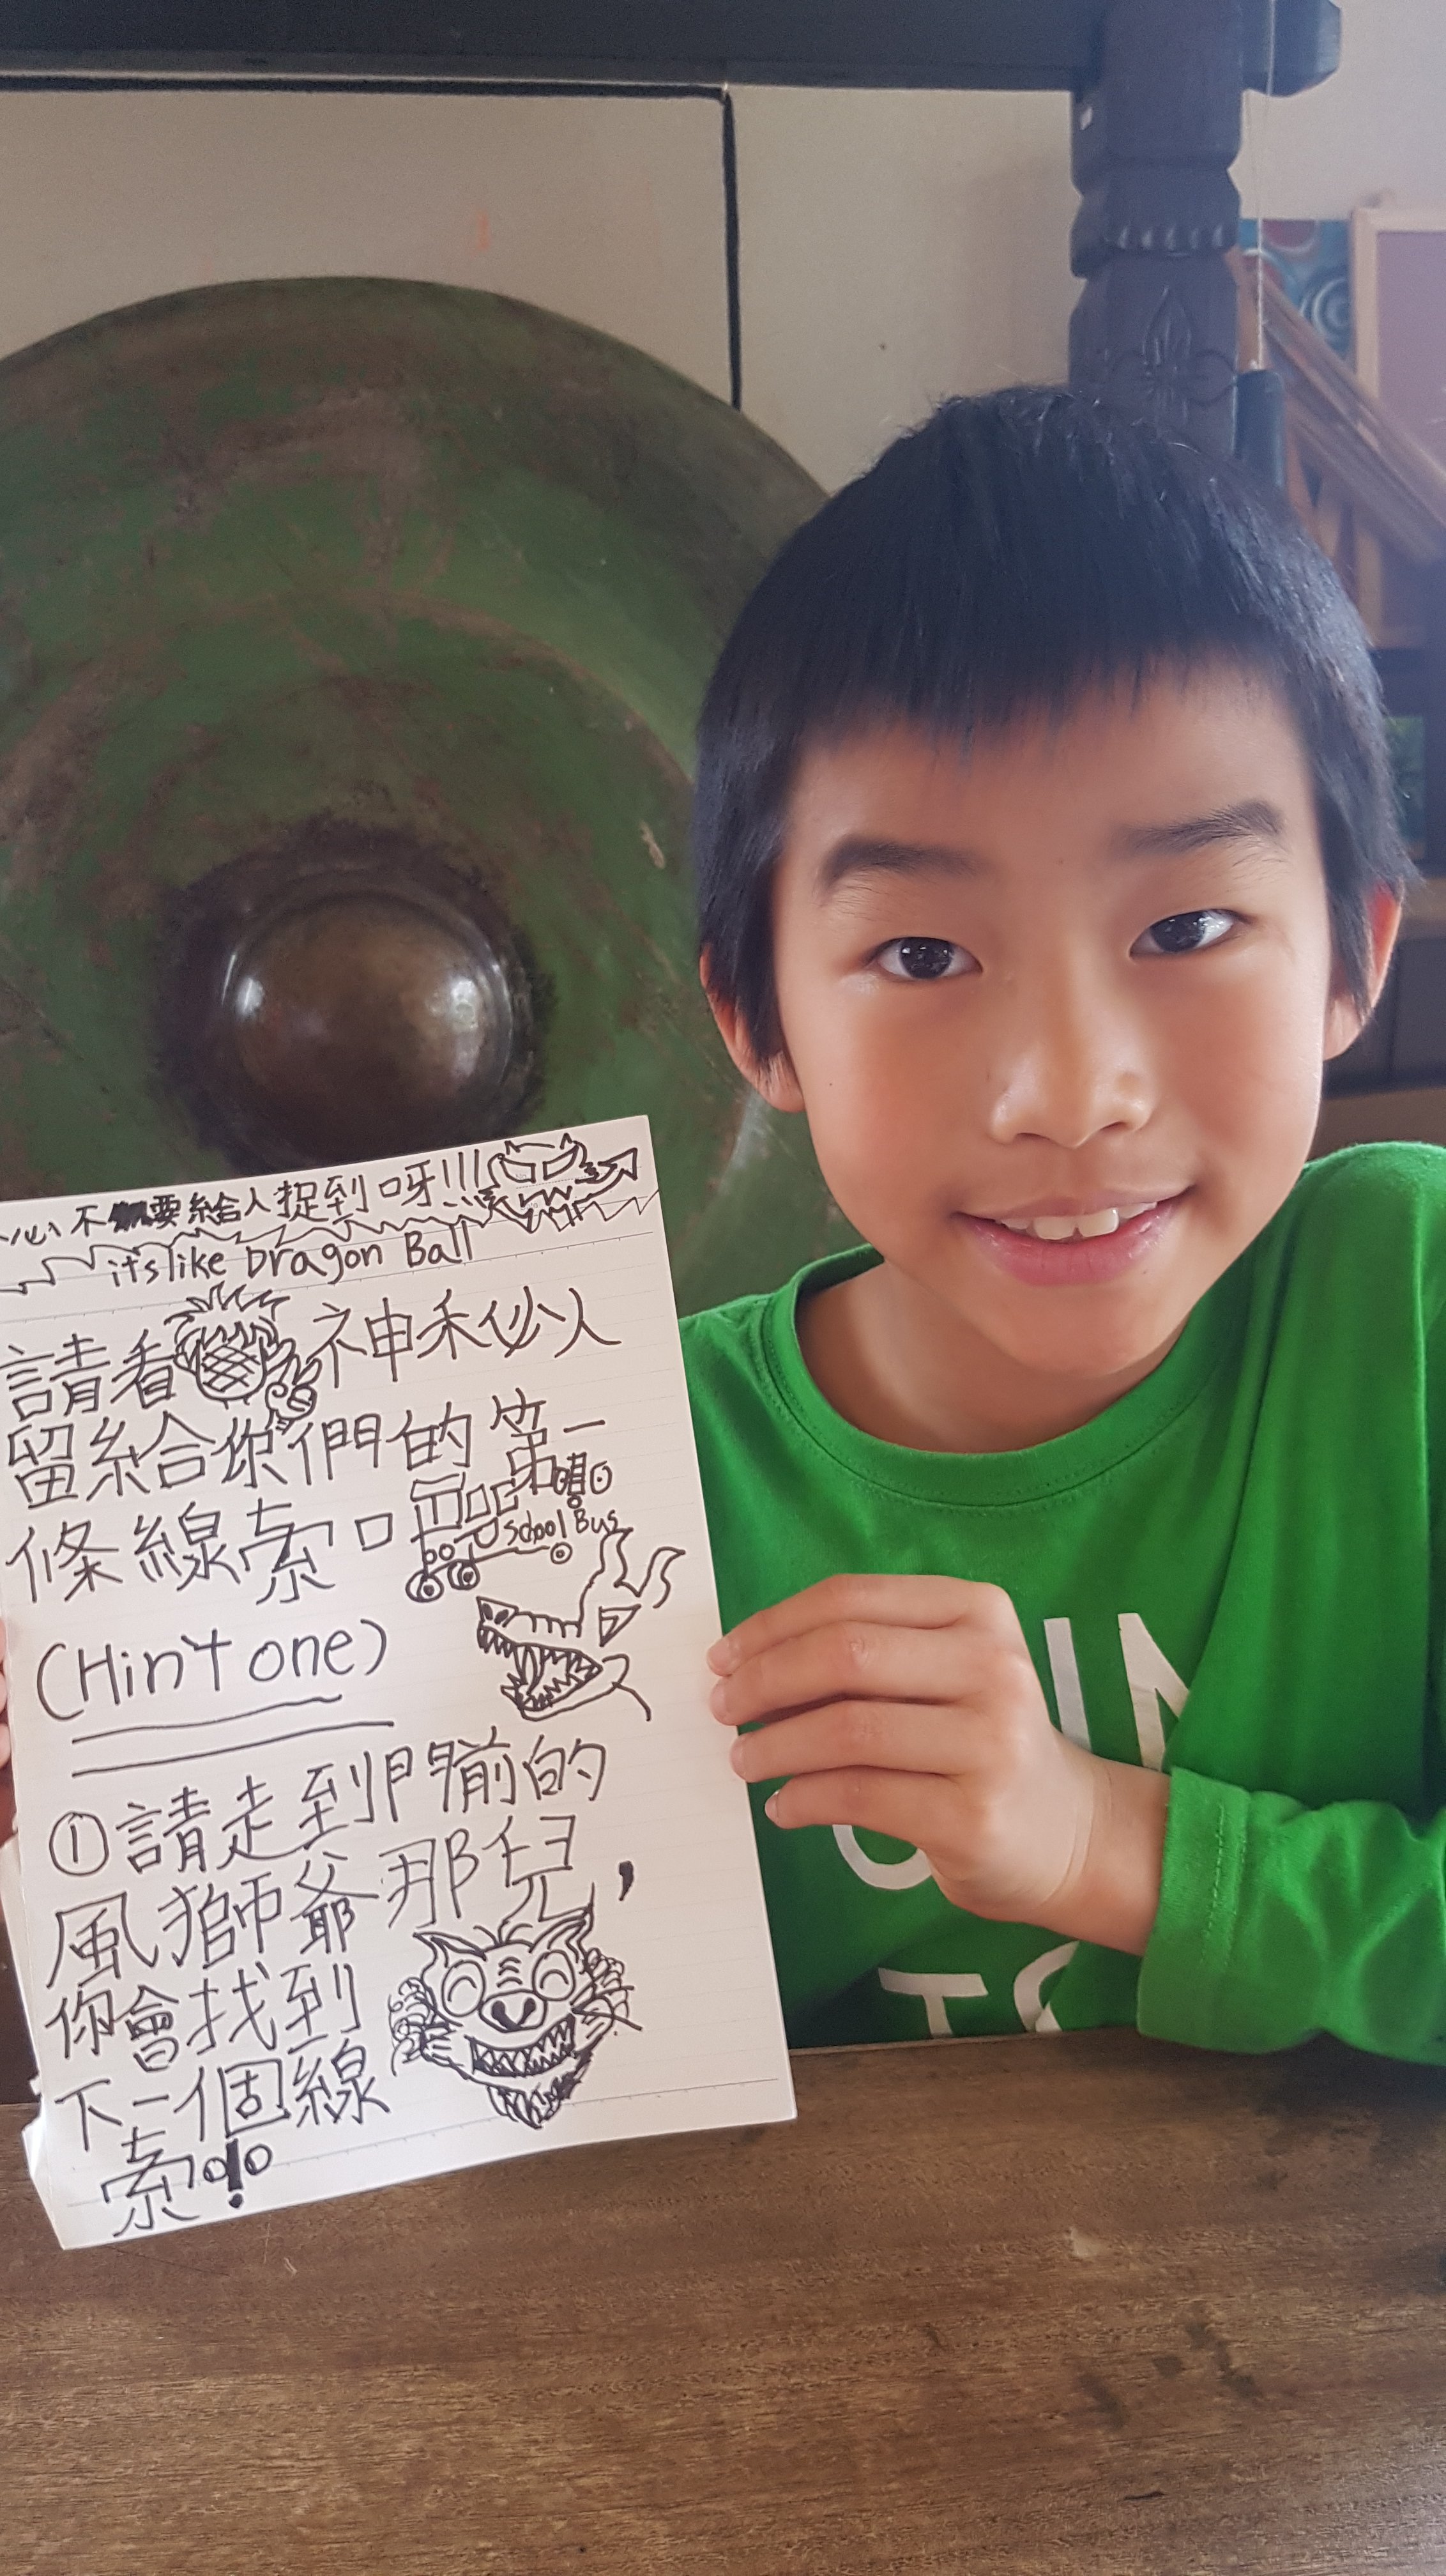 心不要給人捉到呀!!!
itslike Dragon Ball
請看神秘人
留給你們的第一
條線索口
School Bus
(Hint one)
①請走到門前的
風獅爺那兒,
你會找到
下一個線
索!
IN
TO